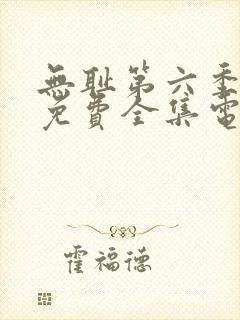 無耻第六季
免費全集電
霍福德